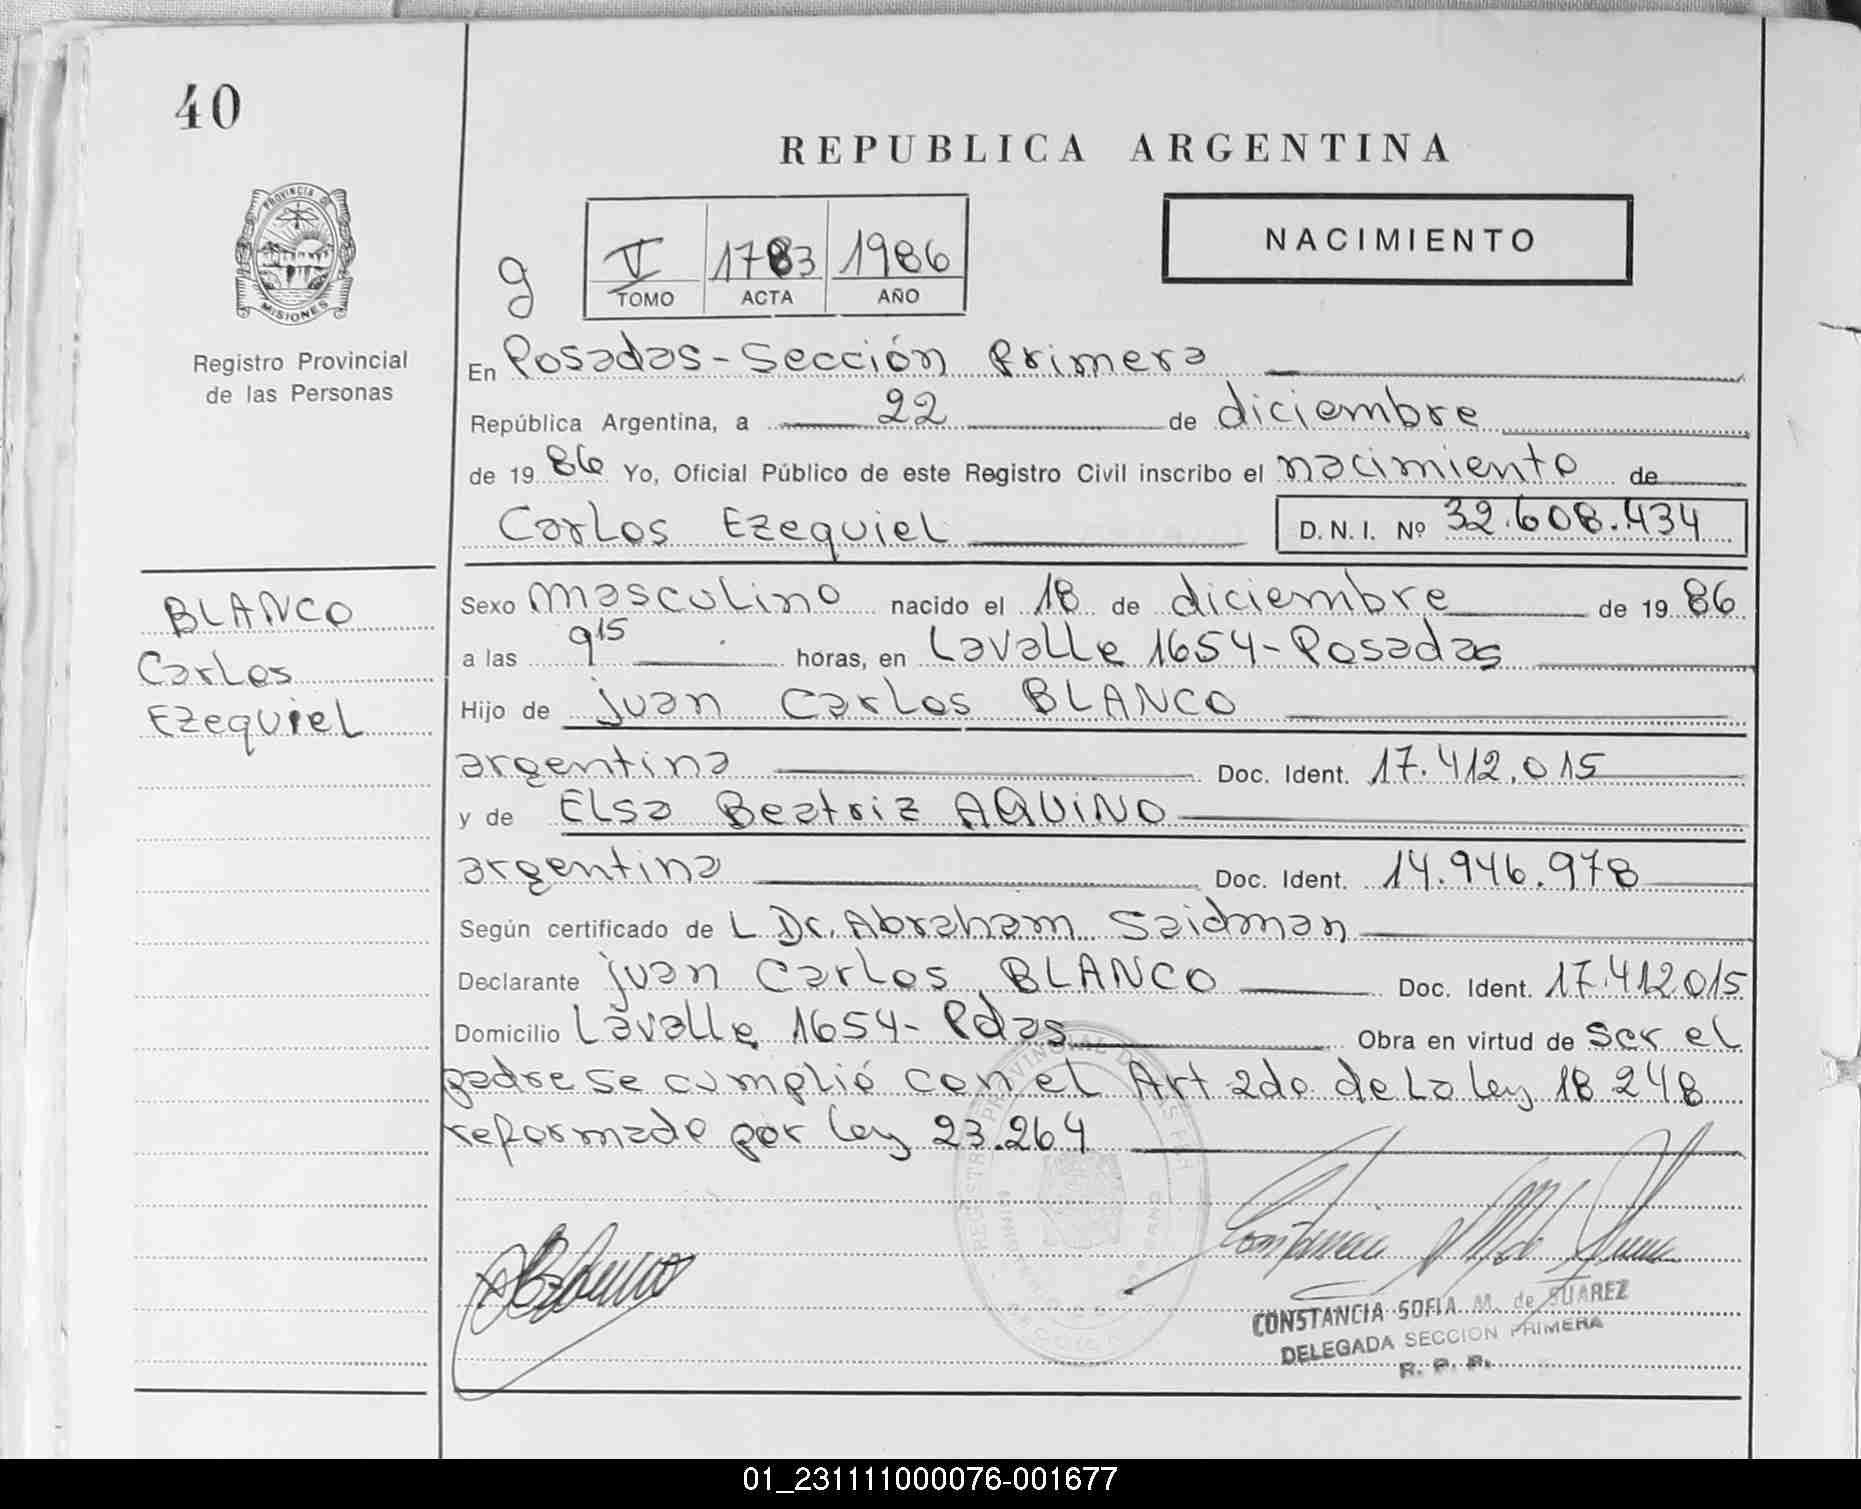 40
REPUBLICA ARGENTINA
PROVINCIA DE
MISIONES
NACIMIENTO
g
V 1783 1986
TOMO ACTA AÑO
Registro Provincial
de las Personas
En Posadas - Sección Primera
República Argentina, a 22 de diciembre
de 19 86 Yo, Oficial Público de este Registro Civil inscribo el nacimiento de
Carlos Ezequiel D.N.I. Nº 32.608.434
BLANCO
Carlos
Ezequiel
Sexo masculino nacido el 18 de diciembre de 19 86
a las 9 15 horas, en Lavalle 1654 - Posadas
Hijo de juan Carlos BLANCO
argentina Doc. Ident. 17.412.015
y de Elsa Beatriz AQUINO
argentina Doc. Ident. 14.946.978
Según certificado de L Dr. Abraham Saidman
Declarante juan Carlos BLANCO Doc. Ident. 17.412015
Domicilio Lavalle 1654 - Pdas Obra en virtud de ser el
padre se cumplió con el Art 2do de La ley 18 248
reformado por ley 23.264
CONSTANCIA SOFIA M. de SUAREZ
DELEGADA SECCION PRIMERA
R. P. P.
01_231111000076-001677